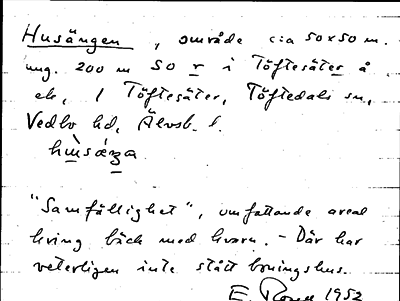 Husängen, område c:a 50x50 m.
ung. 200 m SO r i Töftesäter å
ek, 1 Töftesäter, Töftedals sn,
Vedbo hd, Älvsb. l.
"Samfällighet", omfattande areal
kring bäck med kvarn. - Där har
veterligen inte stått boningshus.
E. 1952